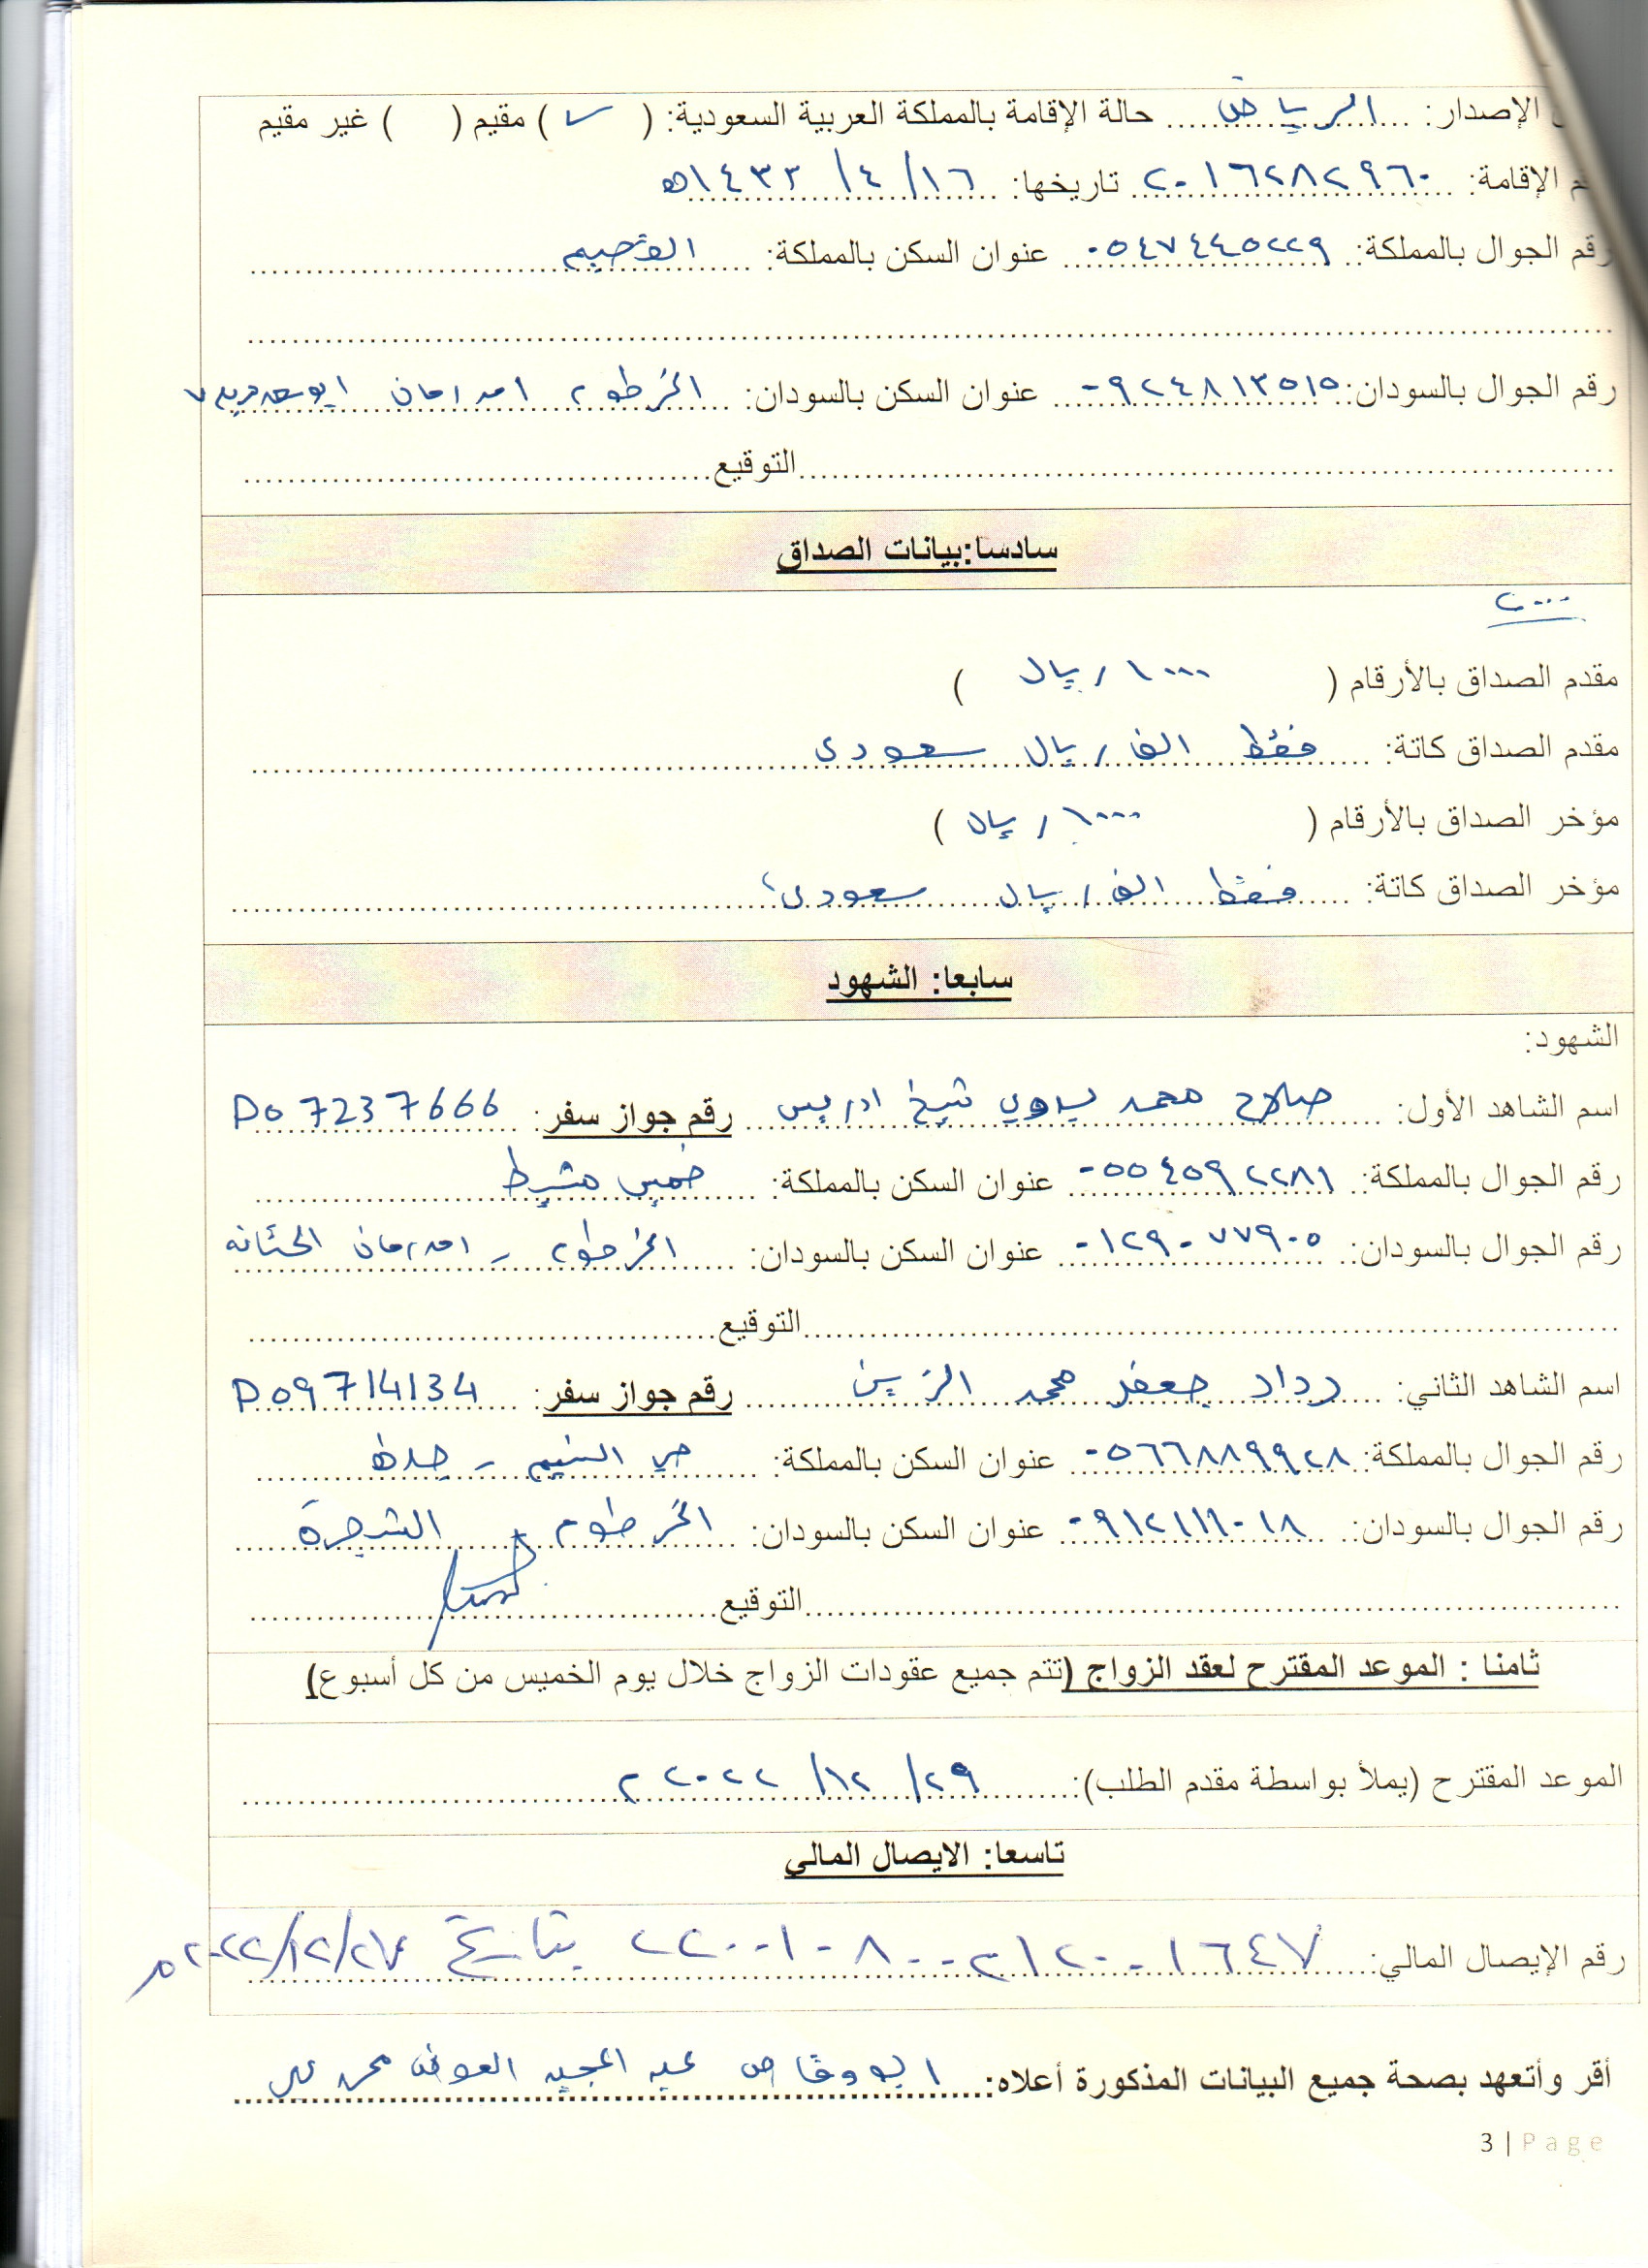 الإصدار: الرياض حالة الإقامة بالمملكة العربية السعودية: ( ✓ ) مقيم ( ) غير مقيم
الإقامة: ٢٠١٦٢٨٢٩٦٠ تاريخها: ١٦/ ٤/ ١٤٣٣ه
رقم الجوال بالمملكة: ٠٥٤٧٤٤٥٢٢٩ عنوان السكن بالمملكة: القصيم
رقم الجوال بالسودان: ٠٩٢٤٨١٣٥١٥ عنوان السكن بالسودان: الخرطوم امدرمان ابوسعد مربع ٧
التوقيع
سادسا:بيانات الصداق
٢٠٠٠
مقدم الصداق بالأرقام ( ١٠٠٠ ريال )
مقدم الصداق كاتة: فقط الف ريال سعودى
مؤخر الصداق بالأرقام ( ١٠٠٠ ريال )
مؤخر الصداق كاتة: فقط الف ريال سعودى
سابعا: الشهود
الشهود:
اسم الشاهد الأول: صلاح محمد بدوي شيخ ادريس رقم جواز سفر: P07237666
رقم الجوال بالمملكة: ٠٥٥٤٥٩٢٢٨١ عنوان السكن بالمملكة: خميس مشيط
رقم الجوال بالسودان: ٠١٢٩٠٧٧٩٠٥ عنوان السكن بالسودان: الخرطوم - امدرمان الحتانه
التوقيع
اسم الشاهد الثاني: رداد جعفر محمد الزين رقم جواز سفر: P09714134
رقم الجوال بالمملكة: ٠٥٦٦٨٨٩٩٢٨ عنوان السكن بالمملكة: حي النسيم - جدة
رقم الجوال بالسودان: ٠٩١٢١١١٠١٨ عنوان السكن بالسودان: الخرطوم الشجرة
التوقيع
ثامنا : الموعد المقترح لعقد الزواج (تتم جميع عقودات الزواج خلال يوم الخميس من كل أسبوع)
الموعد المقترح (يملأ بواسطة مقدم الطلب): ٢٩/ ١٢/ ٢٠٢٢ م
تاسعا: الايصال المالي
رقم الإيصال المالي: ٢٢٠٠١٠٨٠٠٢١٢٠٠١٦٤٧ بتاريخ ٢٠٢٢/١٢/٢٧م
أقر وأتعهد بصحة جميع البيانات المذكورة أعلاه: ابووقاص عبد المجيد العوض محمد علي
3 | Page